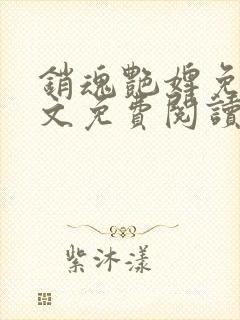 銷魂艷婢免
文免費閱讀
紫沐漾